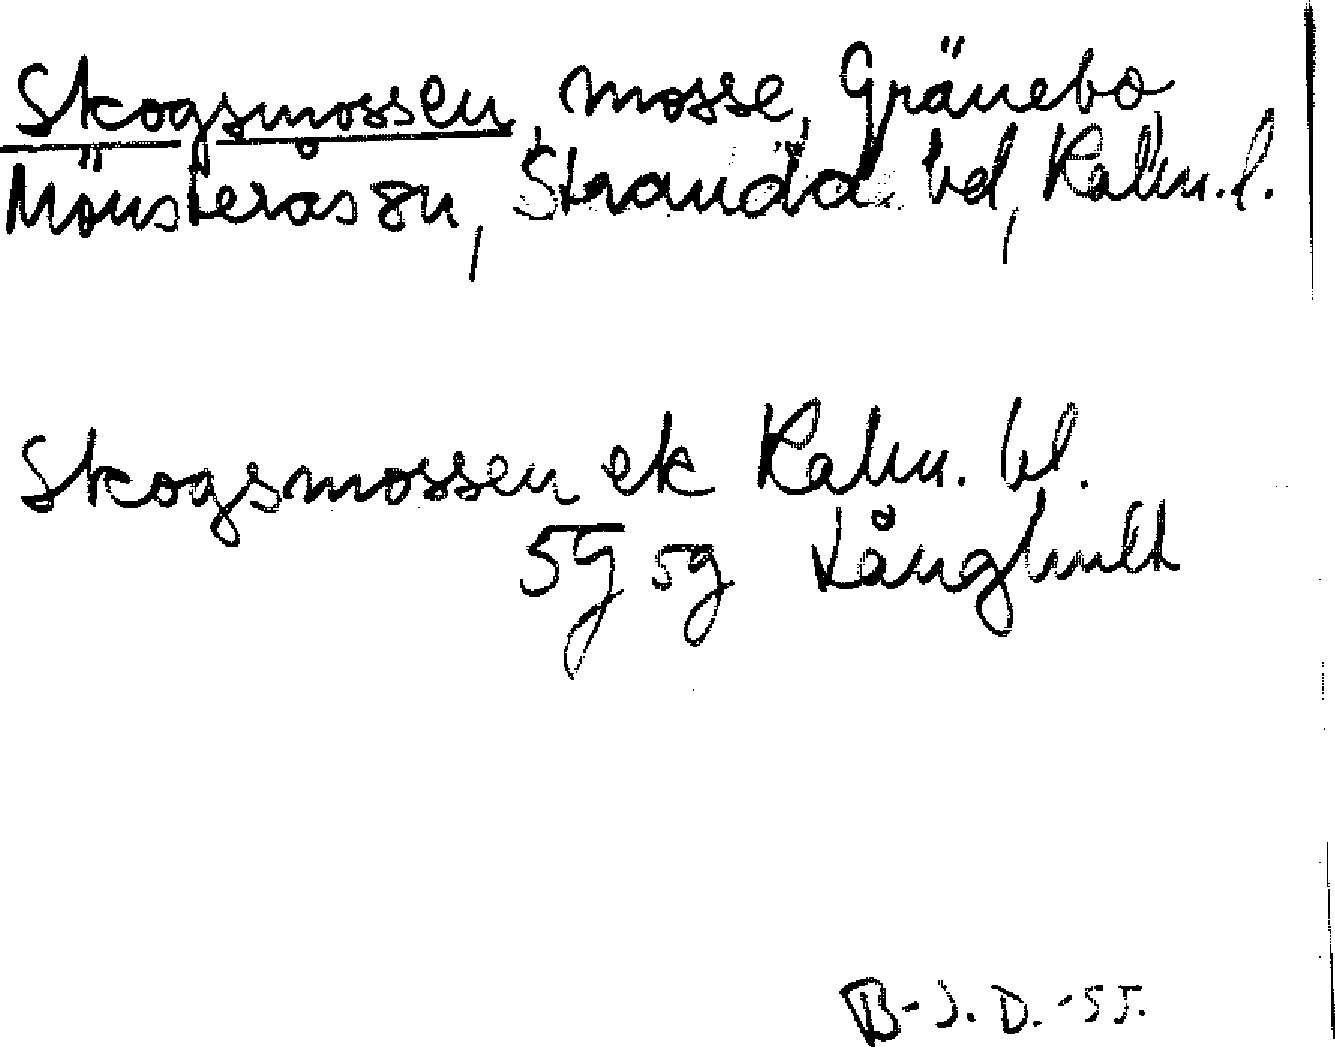 Skogsmossen, mosse, Gränebo,
Mönsterås sn, Stranda hd, Kalm. l.
Skogsmossen ek Kalm. bl.
5G 5g Långhult
B-J. D. -55.